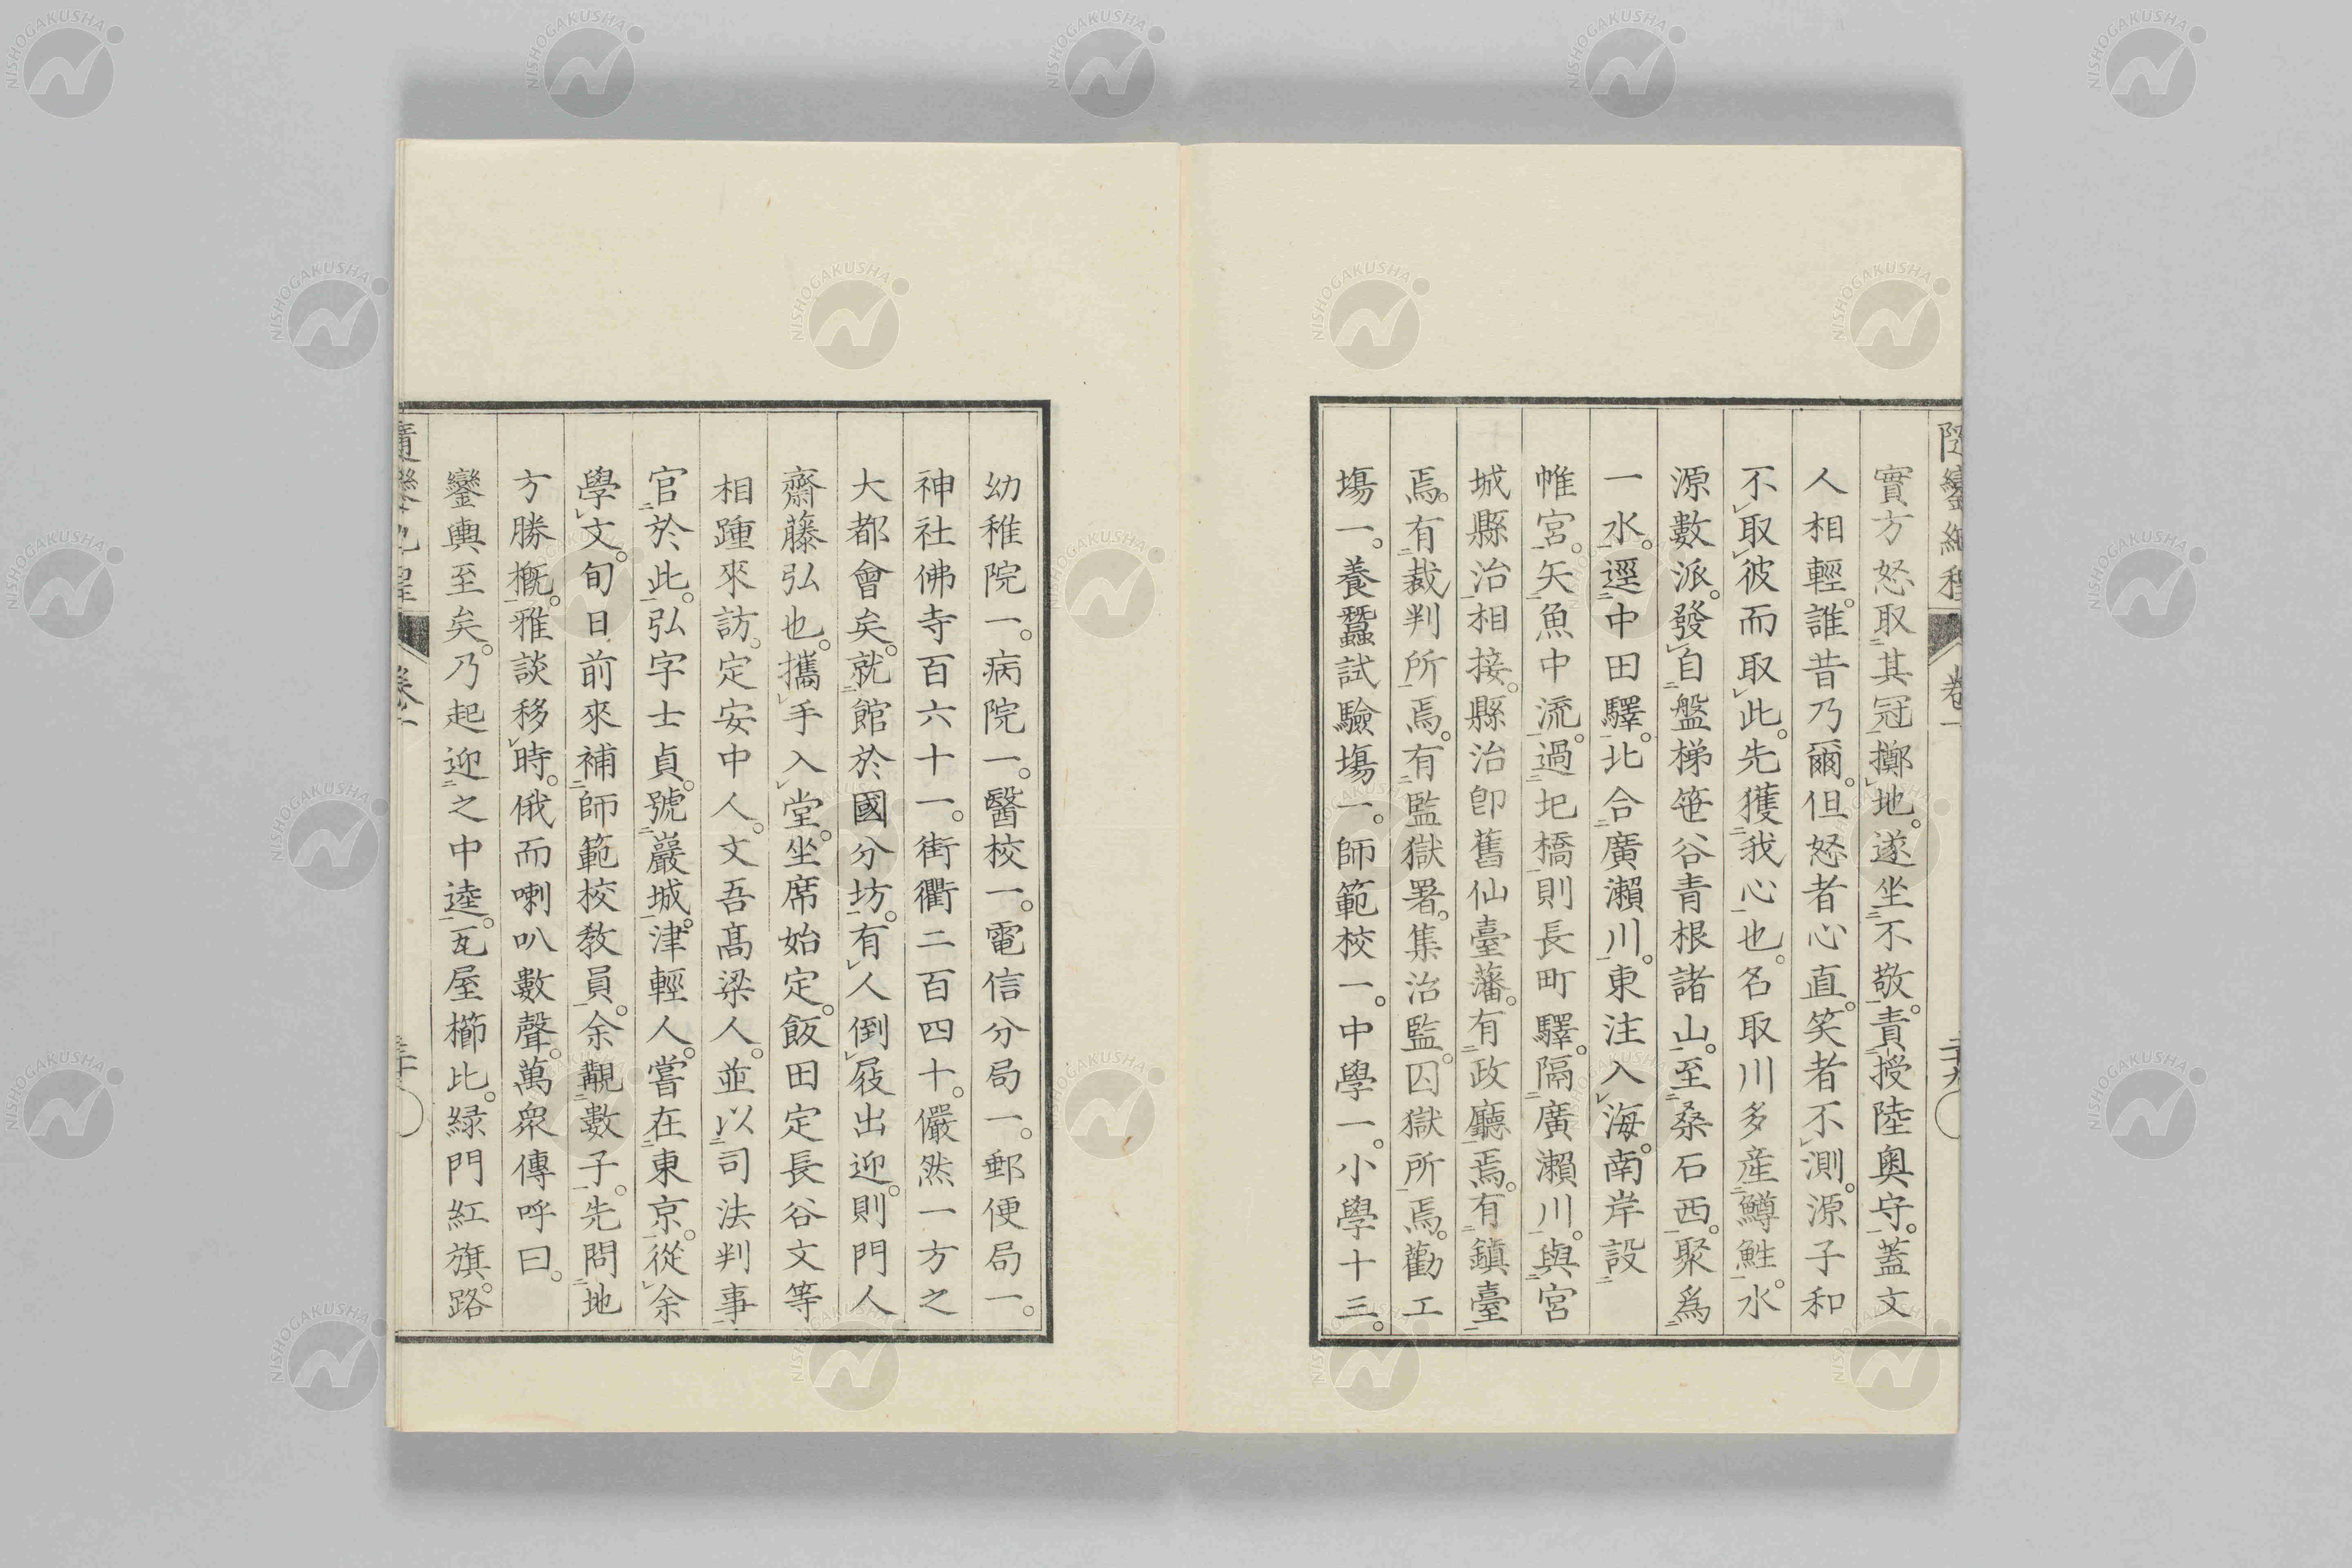 實方怒取其冠擲地。遂坐不敬。責授陸奥守。蓋文
人相輕。誰昔乃爾。但怒者心直。笑者不測。源子和
不取彼而取此。先獲我心也。名取川多産鱒鮏。水
源數派。發自盤梯笹谷青根諸山。至桑石西。聚爲
一水。逕中田驛。北合廣瀨川。東注入海。南岸設
帷宮。矢魚中流。過圯橋則長町驛。隔廣瀨川。與宮
城縣治相接。縣治卽舊仙臺藩。有政廳焉。有鎮臺
焉。有裁判所焉。有監獄署。集治監。囚獄所焉。勸工
塲一。養蠶試驗塲一。師範校一。中學一。小學十三。
幼稚院一。病院一。醫校一。電信分局一。郵便局一。
神社佛寺百六十一。街衢二百四十。儼然一方之
大都會矣。就館於國分坊。有人倒屐出迎。則門人
齋藤弘也。攜手入堂。坐席始定。飯田定長谷文等
相踵來訪。定安中人。文吾髙梁人。並以司法判事
官於此。弘字士貞。號巖城。津輕人。嘗在東京。從余
學文。旬日前來補師範校教員。余覯數子。先問地
方勝概。雅談移時。俄而喇叭數聲。萬衆傳呼曰。
鑾輿至矣。乃起迎之中逵。瓦屋櫛比。緑門紅旗。路
卷一
NISHOGAKUSHA